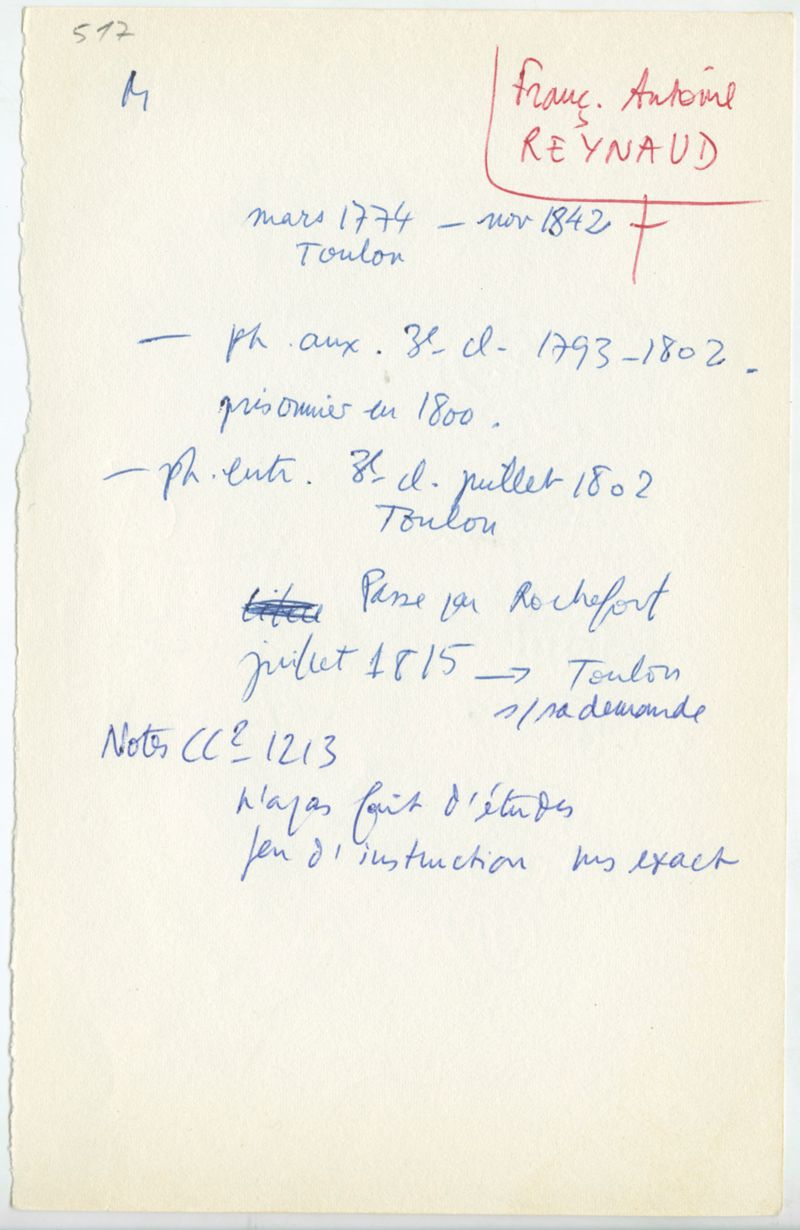 517
M
Franç. Antoine
REYNAUD
mars 1774 – nov 1842 †
Toulon
— ph. aux. 3e cl. 1793–1802.
prisonnier en 1800.
— ph. entr. 3e cl. juillet 1802
Toulon
Passe par Rochefort
juillet 1815 → Toulon
s/sa demande
Notes CC2 1213
n'a pas fait d'études
peu d'instruction ms exact